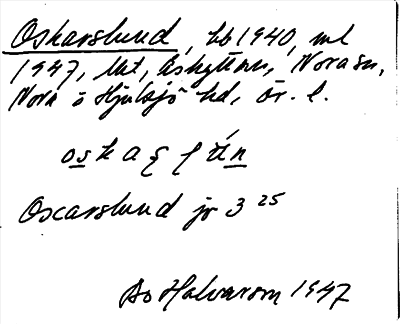 Oskarslund, bb 1940, ml
1947, lht, Åsbyttan, Nora sn,
Nora o Hjulsjö hd, Ör. l.
Oscarslund jr 3 25
Bo Halvarson 1947